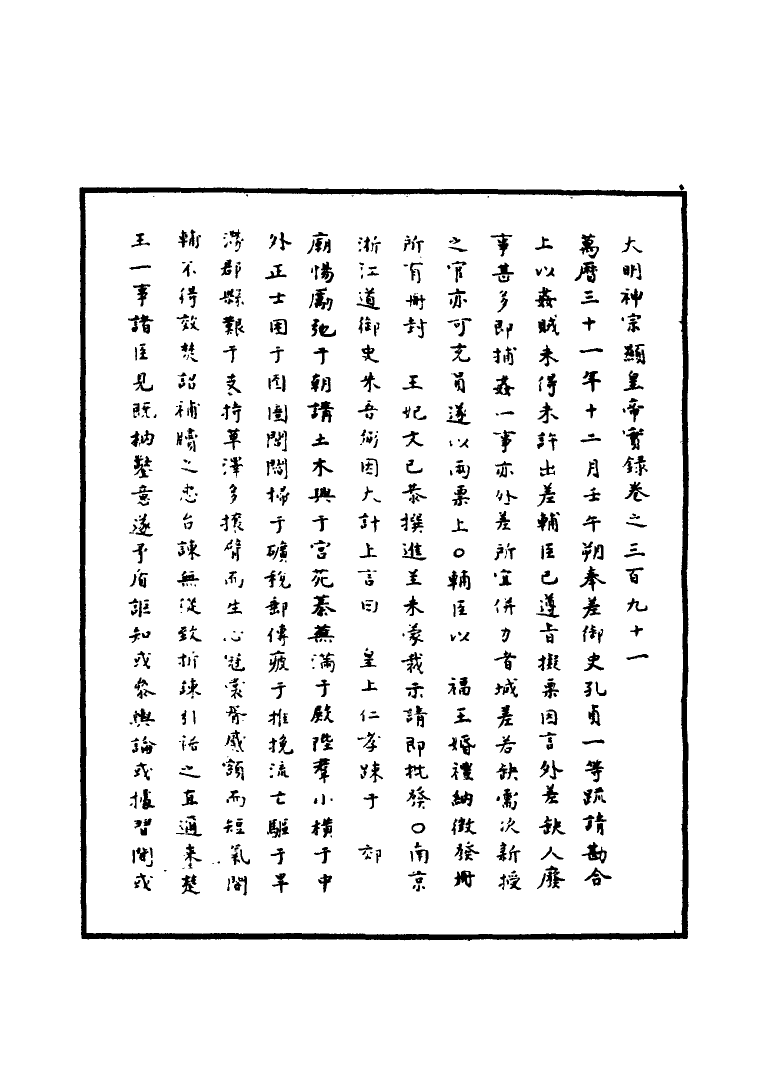 大明神宗顯皇帝實錄卷之三百九十一
萬曆三十一年十二月壬午朔奉差御史孔貞一等疏請勘合
上以姦賊未得未許出差輔臣已遵旨擬票因言外差缺人廢
事甚多即捕姦一事亦外差所宜併力者城差若缺需次新授
之官亦可充員遂以兩票上○輔臣以　福王婚禮納徵發冊
所有冊封　王妃文已恭撰進呈未蒙裁示請即批發○南京
浙江道御史朱吾弼因大計上言曰　皇上仁孝踈于　郊
廟惕厲弛于朝講土木興于宮苑蓁蕪滿于殿陛羣小橫于中
外正士困于囹圄閭閻掃于礦稅郵傳疲于推挽流亡驅于旱
澇郡縣艱于支持草澤多攘臂而生心冠裳脊蹙額而短氣閣
輔不得效焚詔補牘之忠台諫無從致折踈引裾之直邇來楚
王一事諸臣見既枘鑿意遂矛盾詎知或參輿論或據習聞或